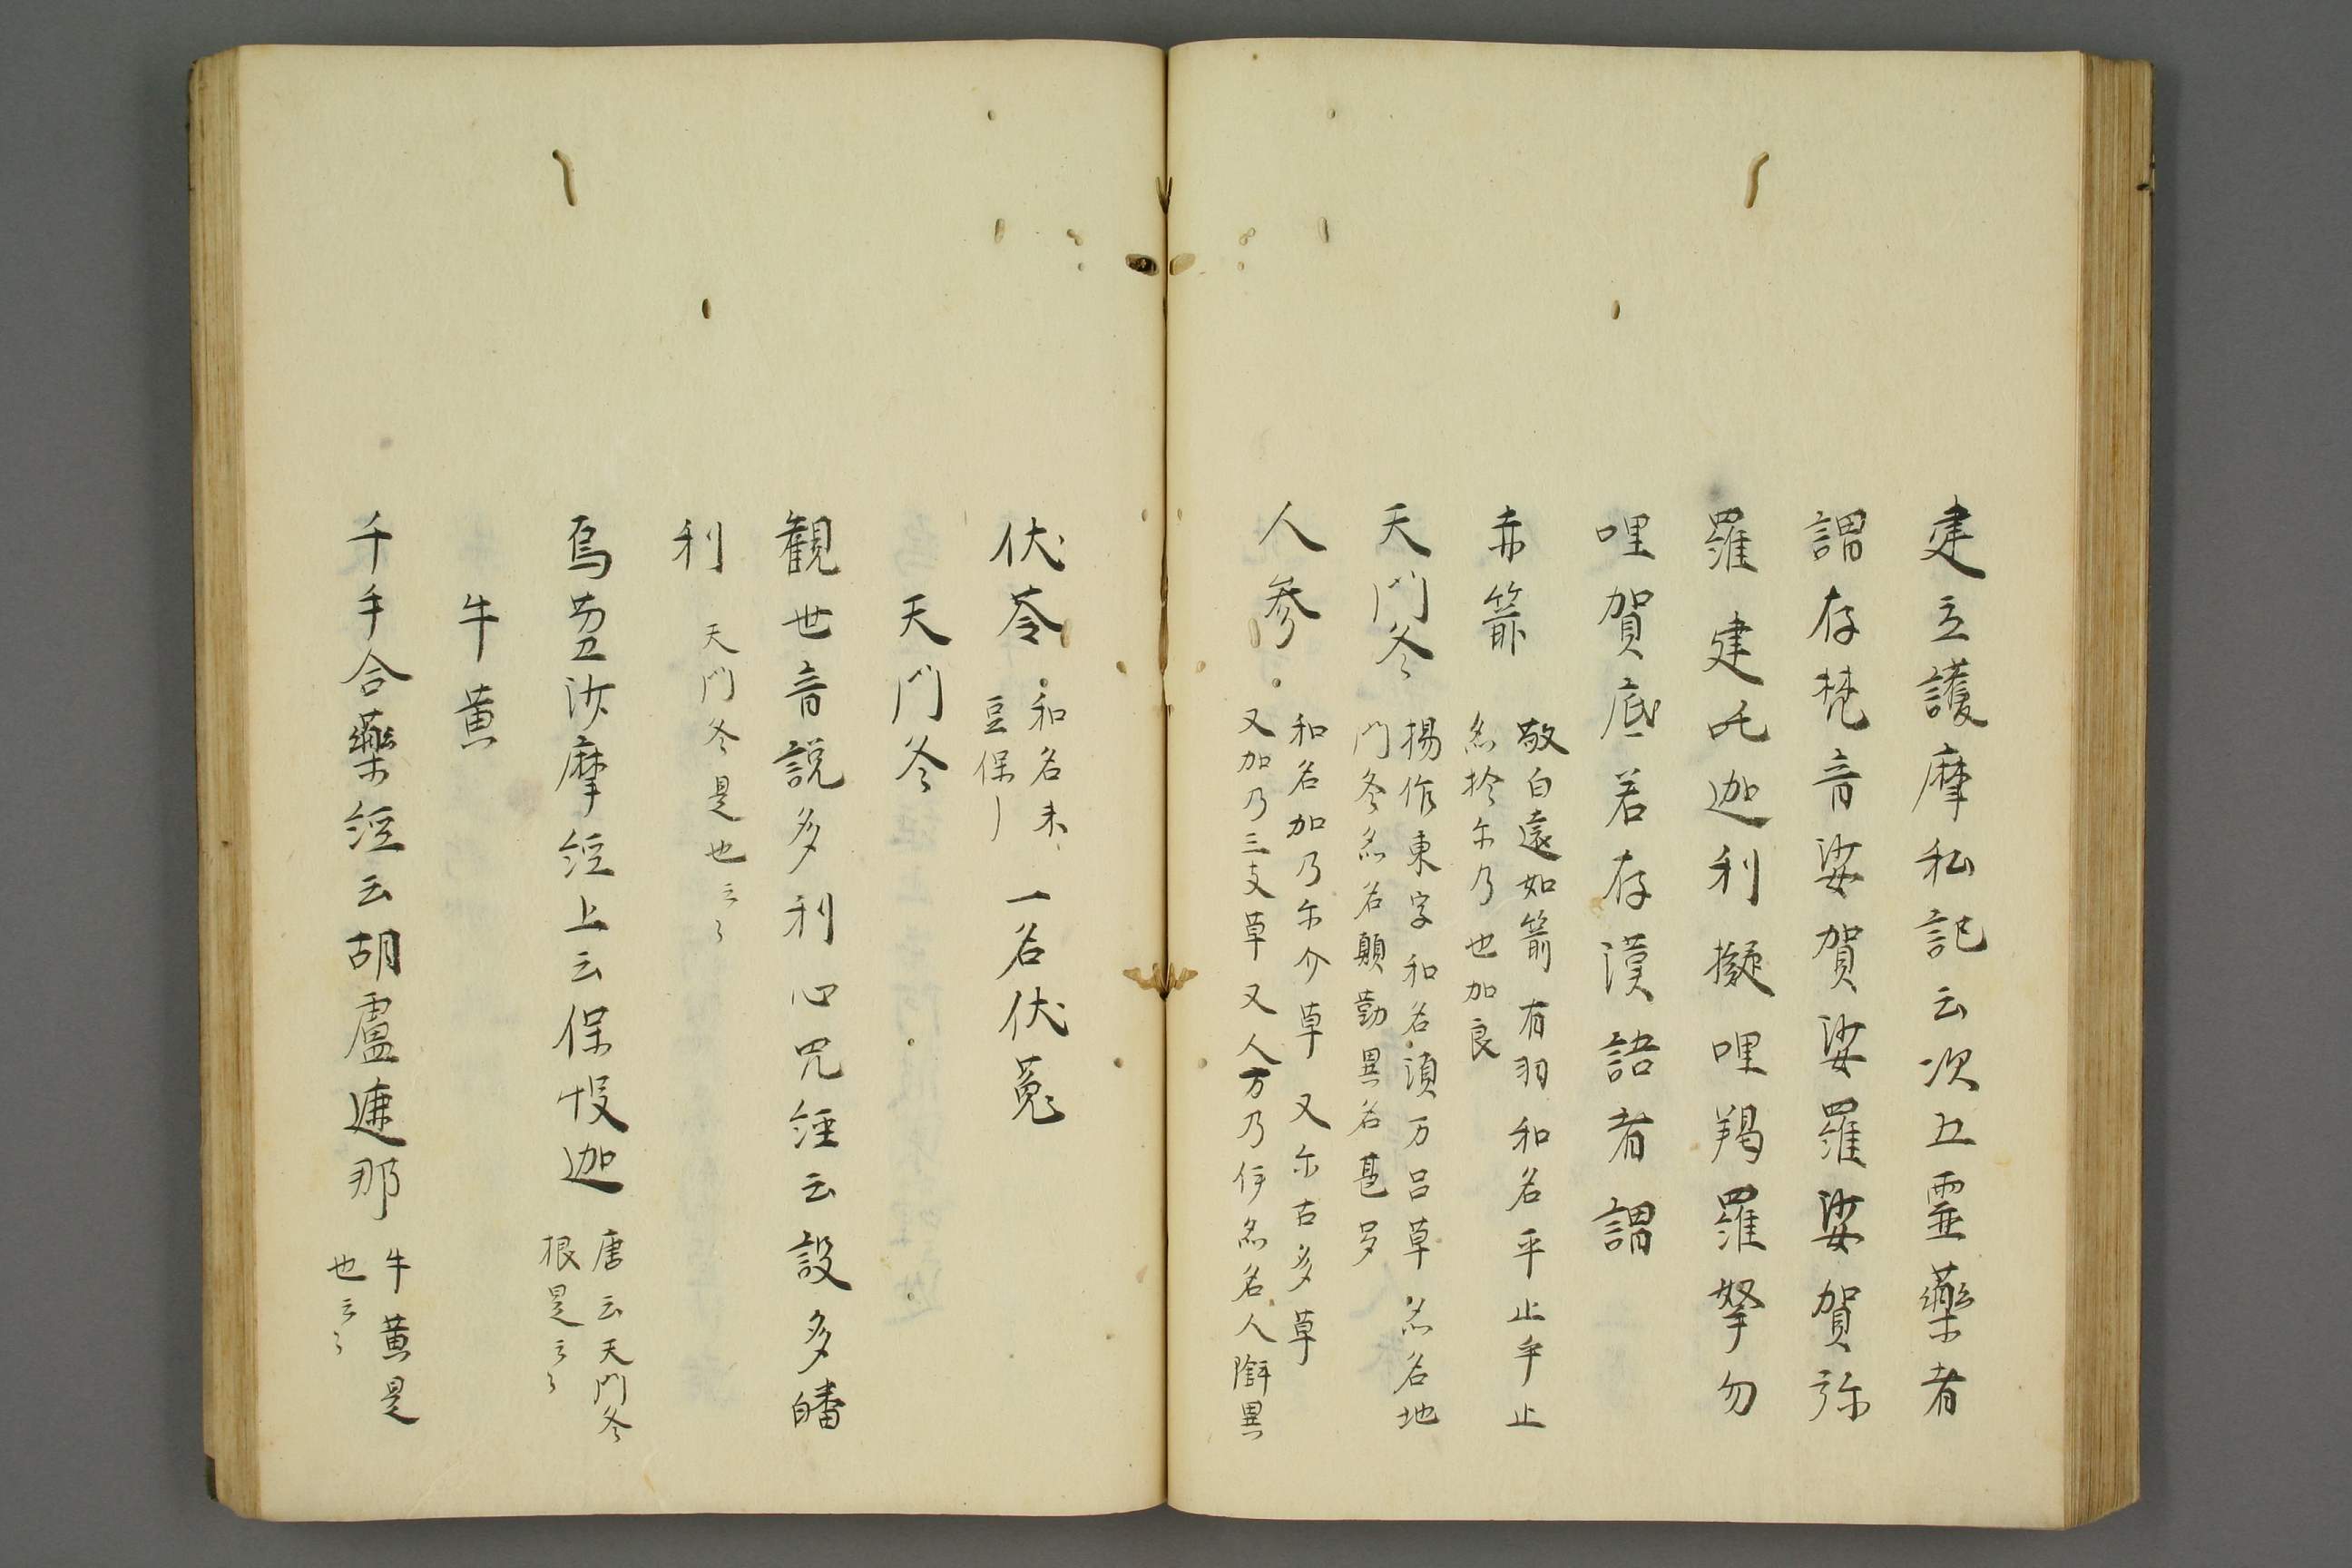 建立護摩私記云次五霊藥者
謂存梵音娑賀娑羅娑賀弥
羅建吒迦利擬哩羯羅拏勿
哩賀底若存漢語者謂
赤箭
敬白遠如箭有羽和名乎止乎止
尓乃也加良
天門冬
楊作東字和名須万呂草 名地
門冬 名顛勤異名
人参
和名加乃尓介草又尓古多草
又加乃三支草又人万乃伊 名人 異
伏苓
和名末、
豆保
一名伏菟
天門冬
観世音説多利心咒経云設多皤
利
天門冬是也云々
烏蒭沙摩経上云保悞迦
唐云天門冬
根是云々
牛黄
千手合藥経云胡盧遮那
牛黄是
也云々